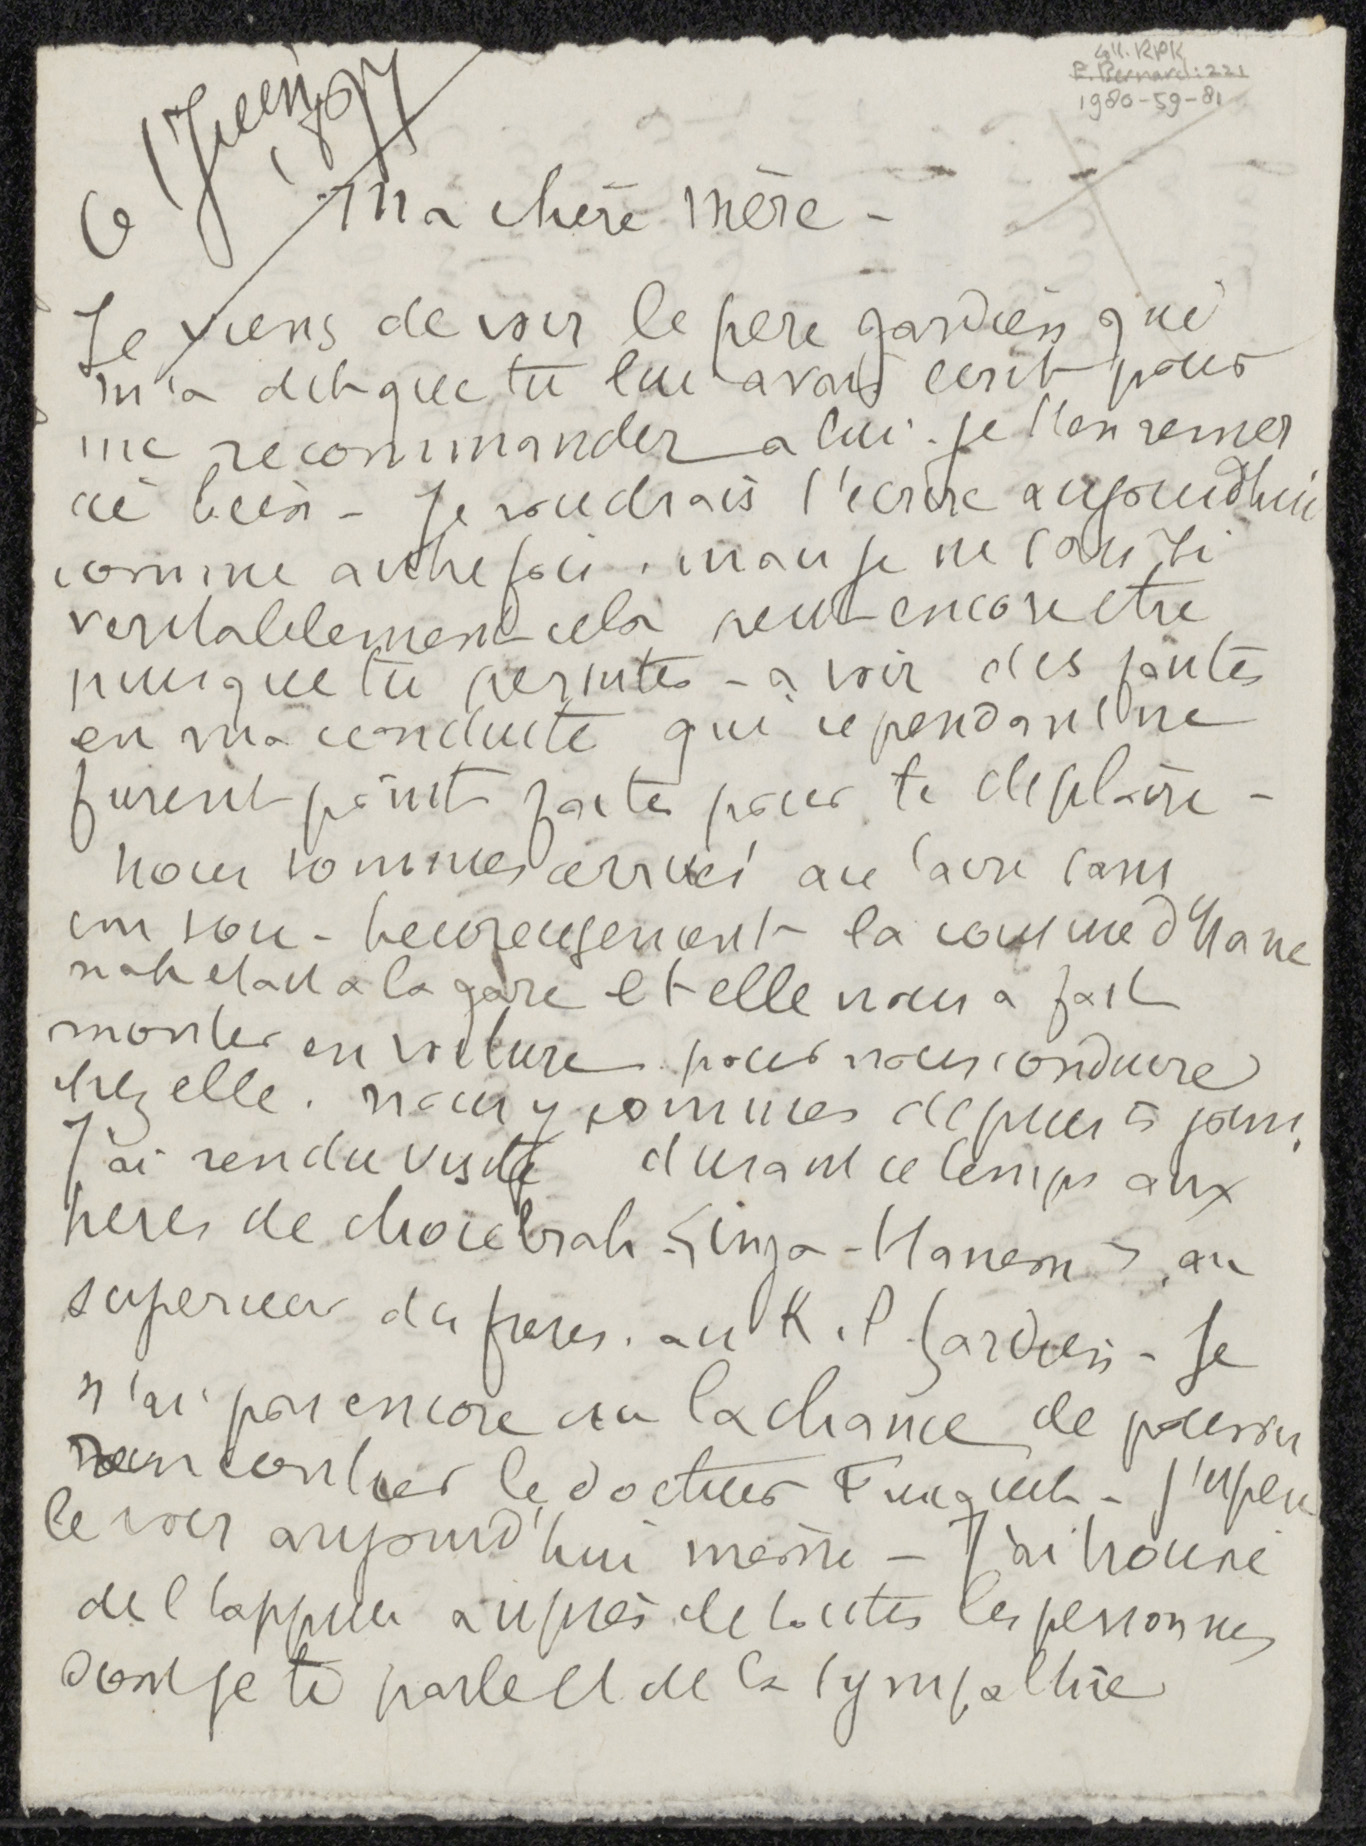 Coll. RPK
E. Bernard: 221
1980-59-81
6 Juin 1897
Ma chère mère -
Je viens de voir le père gardien qui
m'a dit que tu lui avais ecrit pour
me recommander a lui. je t'en remer
cie bien - Je voudrais t'ecrire aujourd'hui
comme autrefois. mais je ne sais si
veritablement cela peut encore etre
puisque tu persistes - a voir des fautes
en ma conduite qui cependant ne
furent point faites pour te deplaire -
nous sommes arrivés au Caire sans
un sou - heureusement la cousine d'Hane
nah etait a la gare et elle nous a fait
monter en voiture pour nous conduire
chez elle. nous y sommes depuis 5 jours.
J'ai rendu visite durant ce temps aux
freres de choubrah - Hanem, au
superieur des freres. au R. P. Gardien - Je
n'ai pas encore eu la chance de pouvoir
rencontrer le docteur Fouquet - j'espere
le voir aujourd'hui même - J'ai trouvé
de l'appui auprès de toutes les personnes
dont je te parle et de la sympathie